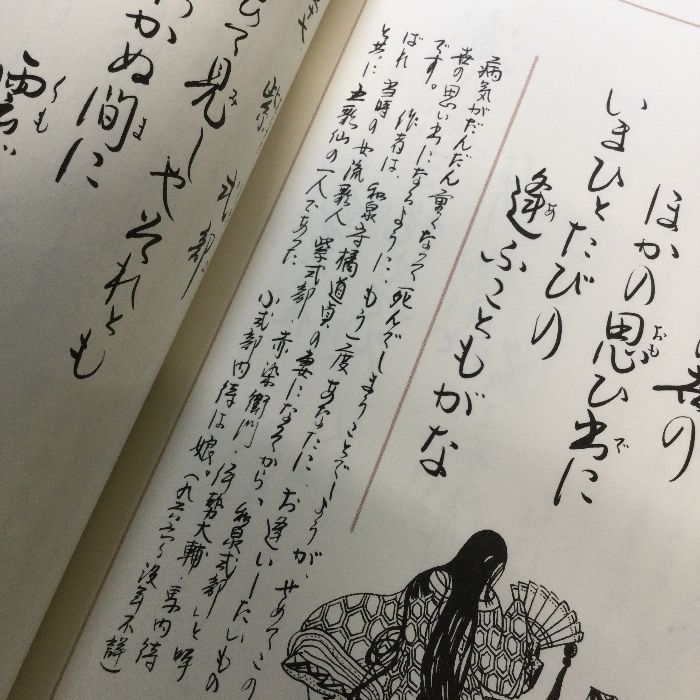 世の
ほかの思ひ出に
おも
で
いまひとたびの
逢ふこともがな
あ
病気がだんだん重くなって死んでしまうことでしょうが、せめてこの
世の思い出になるように、もう一度あなたにお逢いしたいもの
です。
作者は、和泉守橘道貞の妻になってから、和泉式部と呼
ばれ、当時の女流歌人、紫式部、赤染衛門、伊勢大輔、馬内侍
と共に五歌仙の一人であった。小式部内侍は娘。(九六六~没年不詳)
紫式部
ひて見しやそれとも
み
わかぬ間に
ま
雲
くも